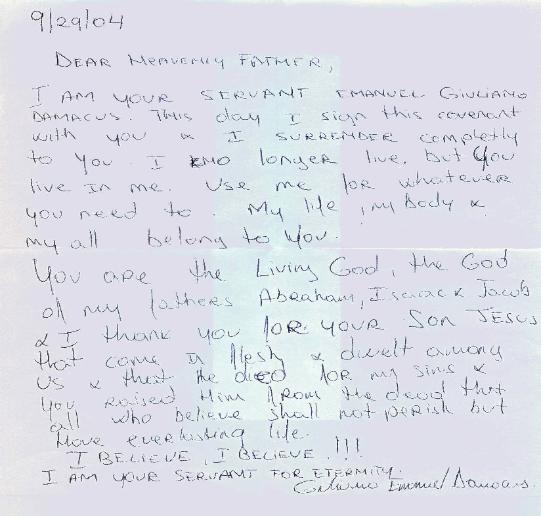 9/29/04
DEAR HEAVENLY FATHER,
I AM YOUR SERVANT EMANUEL GIULIANO
DAMACUS. This day I sign this covenant
with you & I SURRENDER completly
to You. I no longer live, but You
live In me. Use me for whatever
you need to. My life, my body &
my all belong to You.
You are the Living God, the God
of my fathers Abraham, Isaac & Jacob
& I thank you for your Son JESUS
that come in flesh & dwelt among
us & that He died for my sins &
You raised Him from the dead that
all who believe shall not perish but
Have everlasting life.
I BELIEVE, I BELIEVE.!!!
I AM YOUR SERVANT FOR ETERNITY.